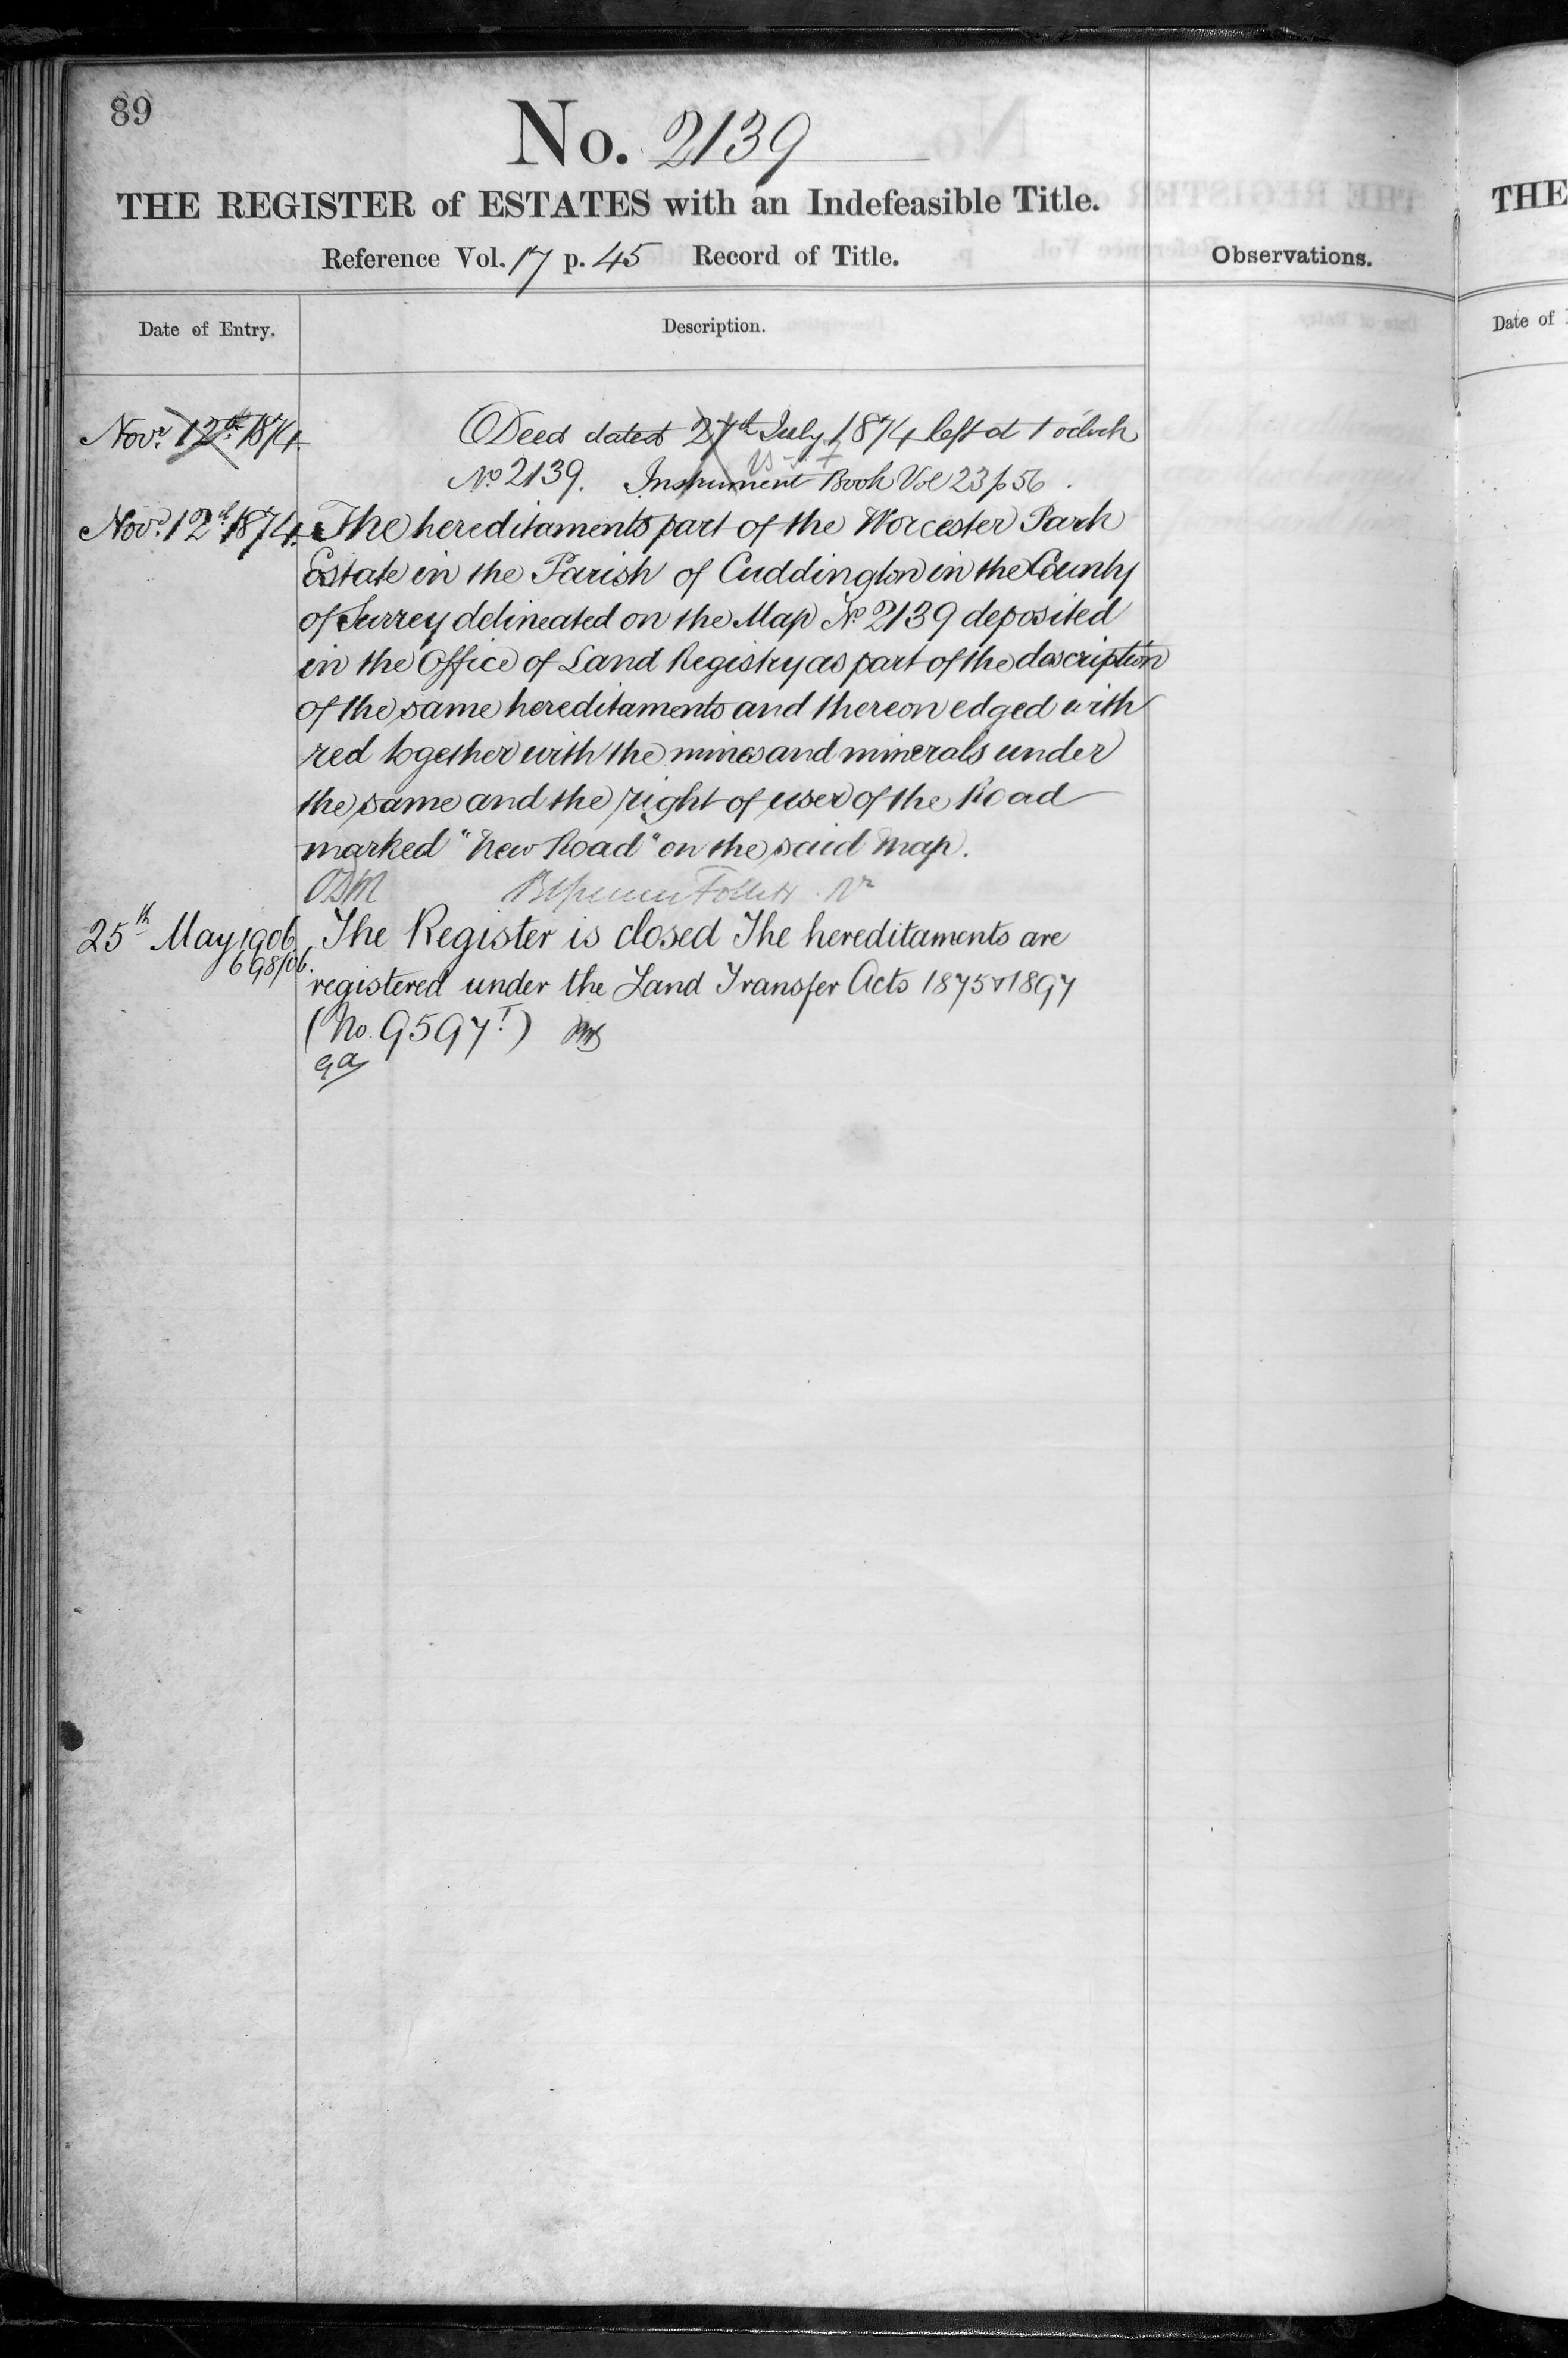 89
No. 2139
THE REGISTER of ESTATES with an Indefeasible Title.
Reference Vol. 17 p. 45 Record of Title.
Observations.
Date of Entry.
Description.
Novr. 12th 1874.
Deed dated 27th July 1874 left at 1 o'clock
No 2139. Instrument Book Vol 23 p 56.
Novr. 12th 1874. The hereditaments part of the Worcester Park
Estate in the Parish of Cuddington in the County
of Surrey delineated on the Map No 2139 deposited
in the Office of Land Registry as part of the description
of the same hereditaments and thereon edged with
red together with the mines and minerals under
the same and the right of user of the Road
marked "New Road" on the said Map.
Follett
25th May 1906. The Register is closed The hereditaments are
698/06. registered under the Land Transfer Acts 1875 & 1897
(No. 9597 I)
THE
Date of